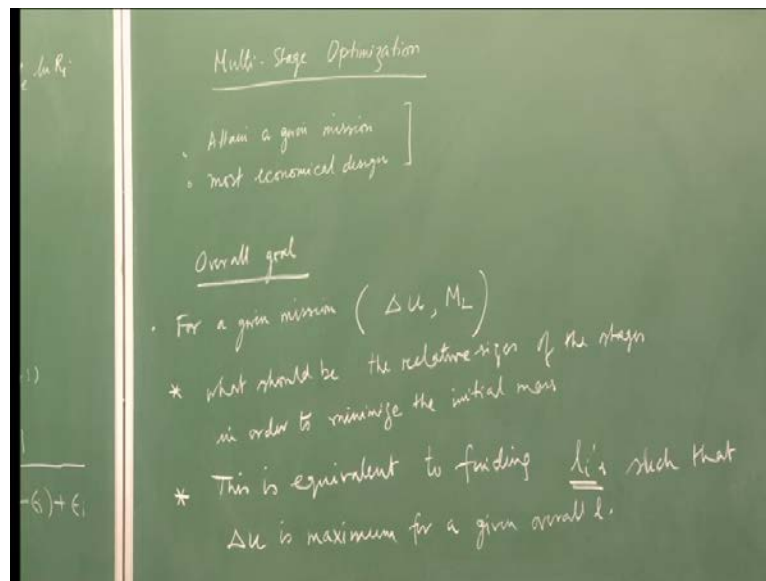 ln Ri
Multi-Stage Optimization
Attain a given mission
most economical design
Overall goal
For a given mission (Δu, ML)
* what should be the relative sizes of the stages
in order to minimize the initial mass
* This is equivalent to finding li's such that
Δu is maximum for a given overall l.
)+ϵi